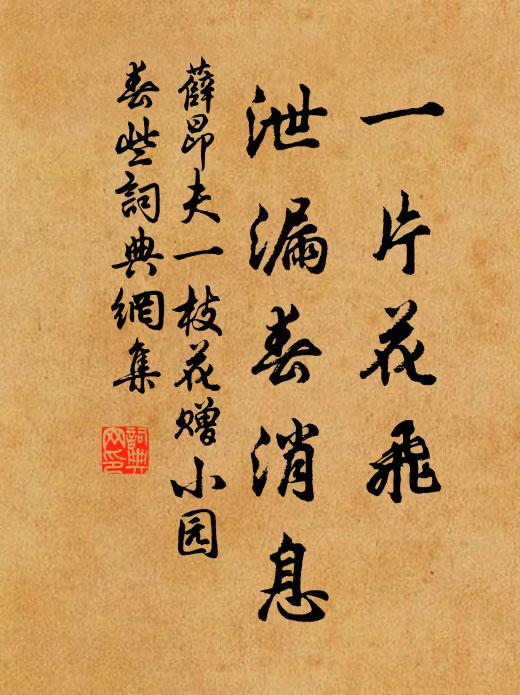 一片花飛
泄漏春消息
薛昂夫一枝花贈小园
春些詞典網集
詞典
网印